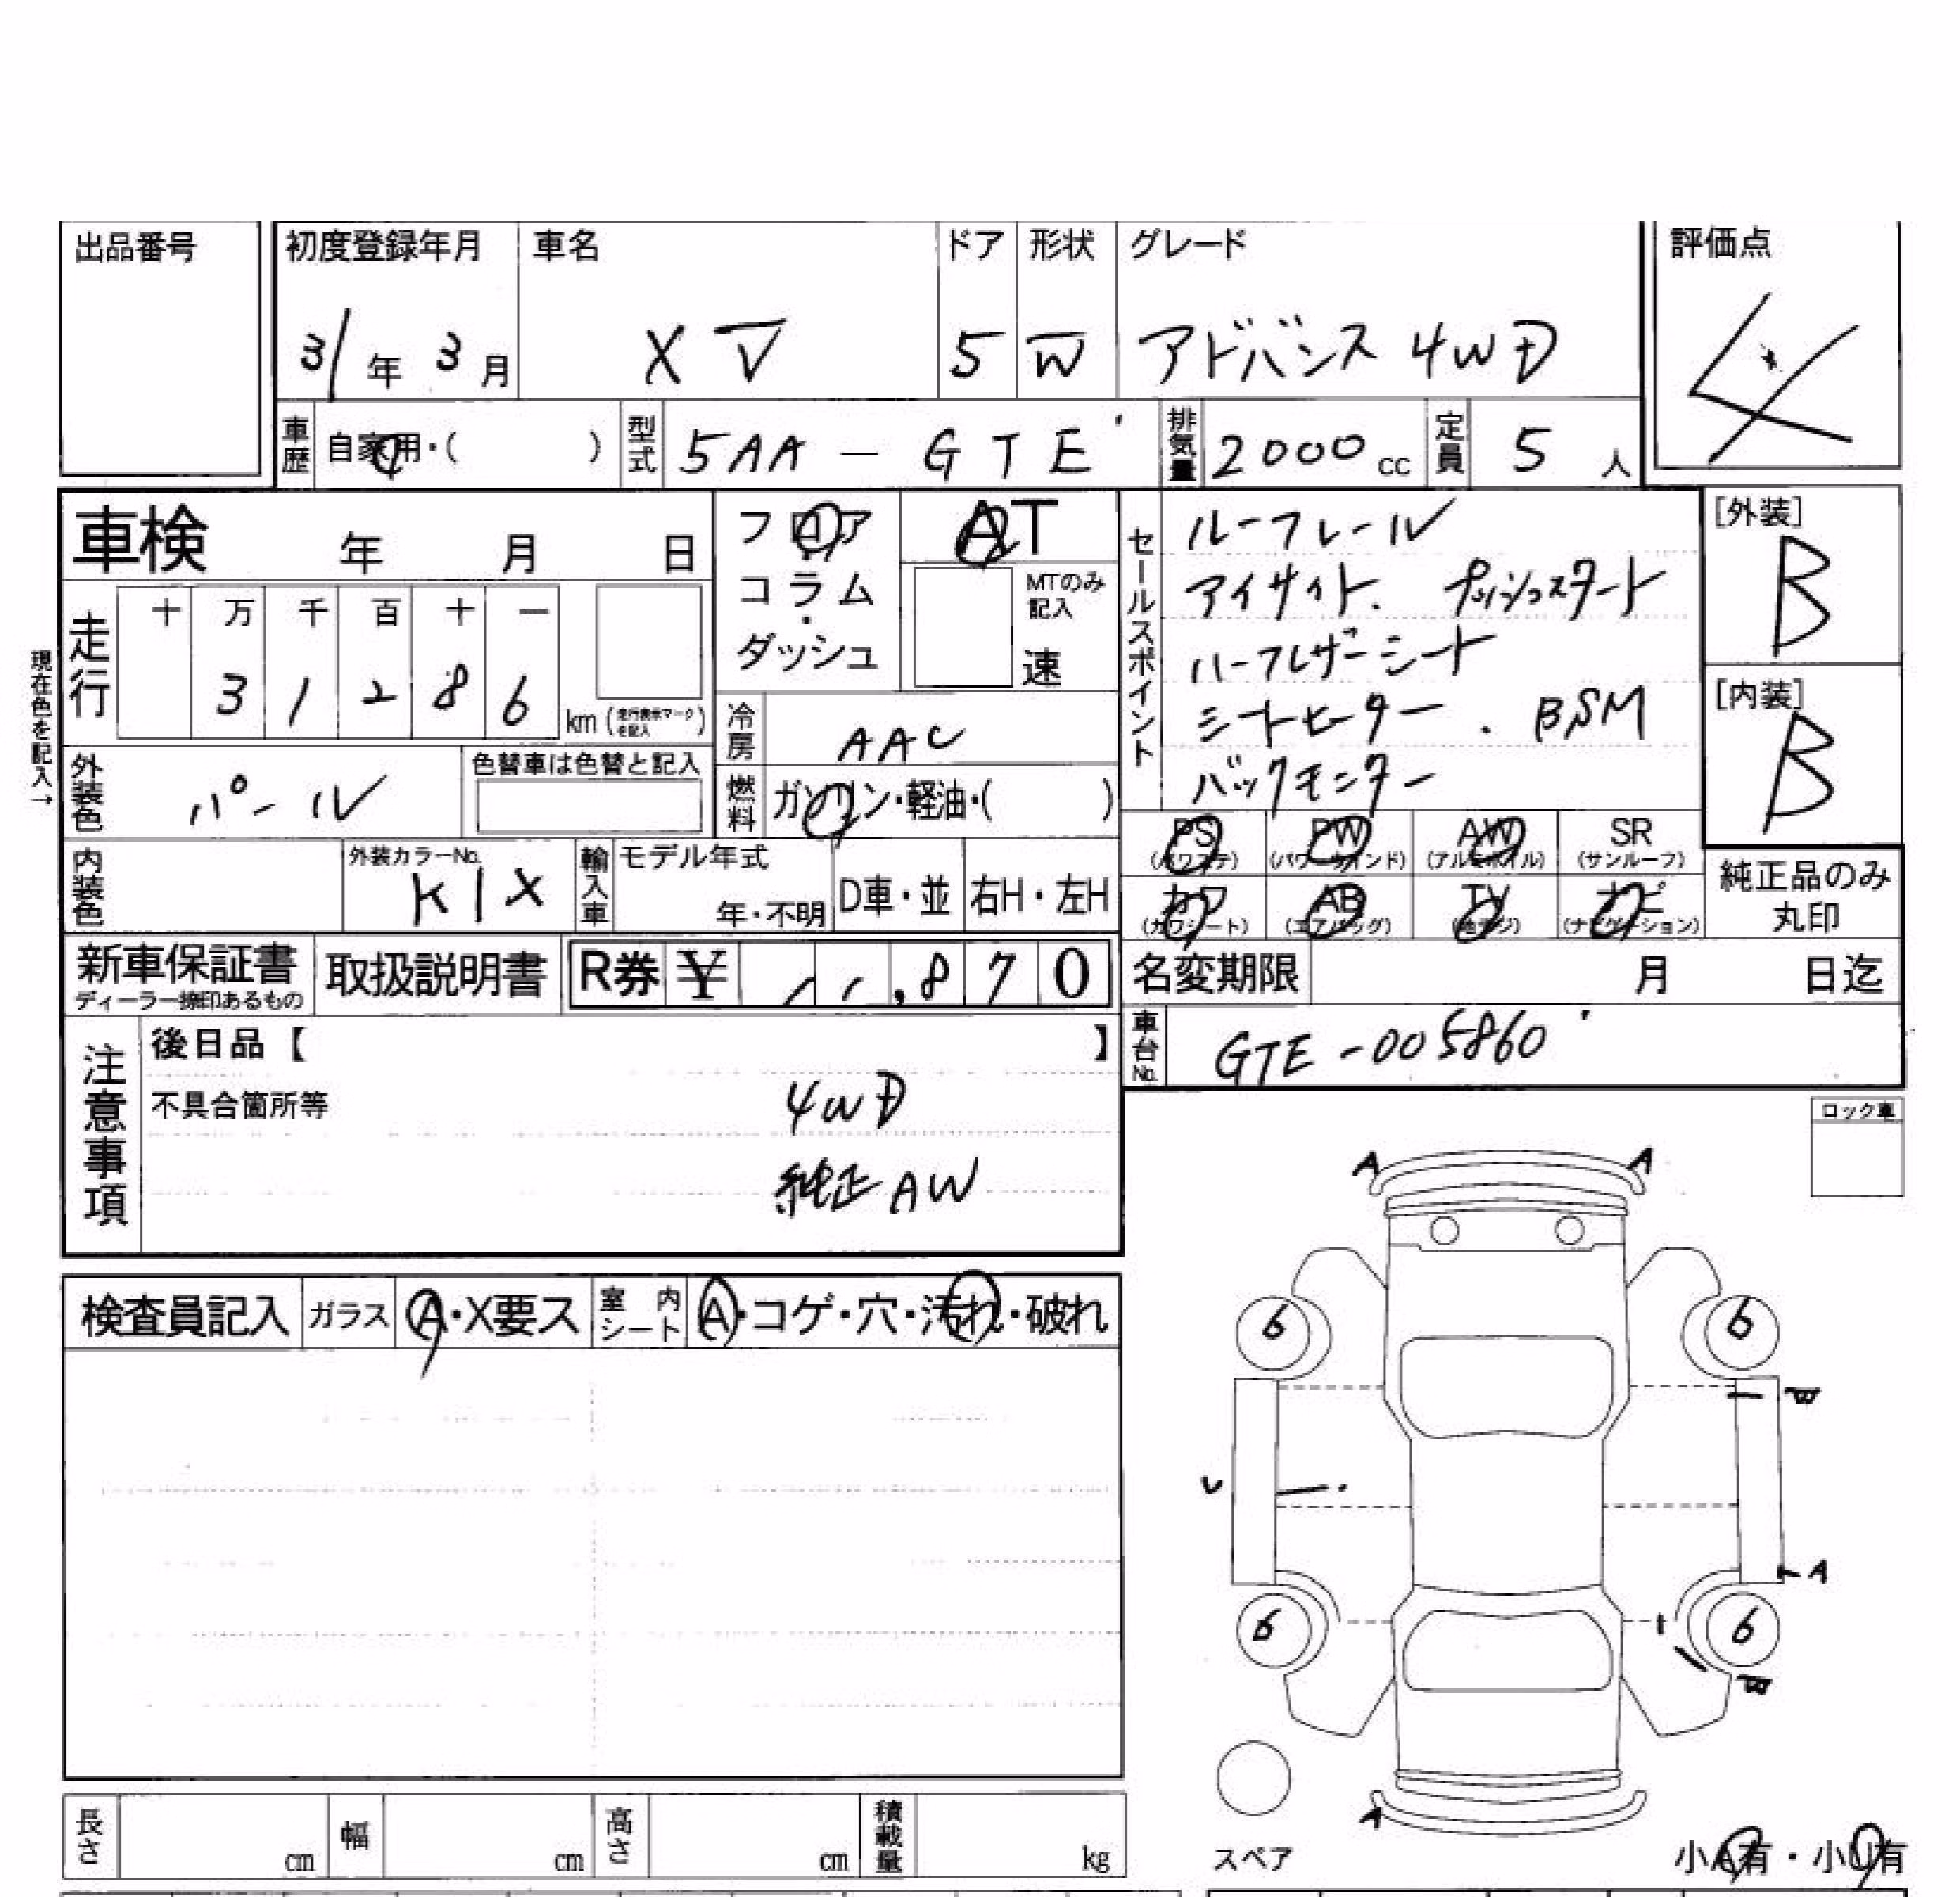 出品番号
初度登録年月 車名 ドア 形状 グレード 評価点
31年 3月 XV 5 W アドバンス 4WD 4
車歴 自家用・( ) 型式 5AA-GTE 排気量 2000cc 定員 5人
車検 年 月 日
フロア
コラム
・
ダッシュ
AT
MTのみ
記入
速
走行
十 万 千 百 十 一
3 1 2 8 6 km (走行表示マークを記入)
現在色を記入→
冷房 AAC
燃料 ガソリン・軽油・( )
外装色 パール
色替車は色替と記入
内装色
外装カラーNo.
K1X
輸入車 モデル年式
年・不明 D車・並 右H・左H
新車保証書
ディーラー捺印あるもの
取扱説明書
R券 ¥ ,870
セールスポイント
ルーフレール
アイサイト. プッシュスタート
ハーフレザーシート
シートヒーター . BSM
バックモニター
[外装]
B
[内装]
B
PS PW AW SR
(パワステ) (パワーウインド) (アルミホイル) (サンルーフ)
カワ AB TV ナビ
(カワシート) (エアバッグ) (地デジ) (ナビゲーション)
純正品のみ
丸印
名変期限 月 日迄
車台No. GTE-005860
注意事項
後日品【 】
不具合箇所等
4WD
純正 AW
ロック車
検査員記入 ガラス A・X要ス 室内シート A・コゲ・穴・汚れ・破れ
A A
6 6
W
U
A
6 6
W
A
スペア
小A有・小U有
長さ cm 幅 cm 高さ cm 積載量 kg